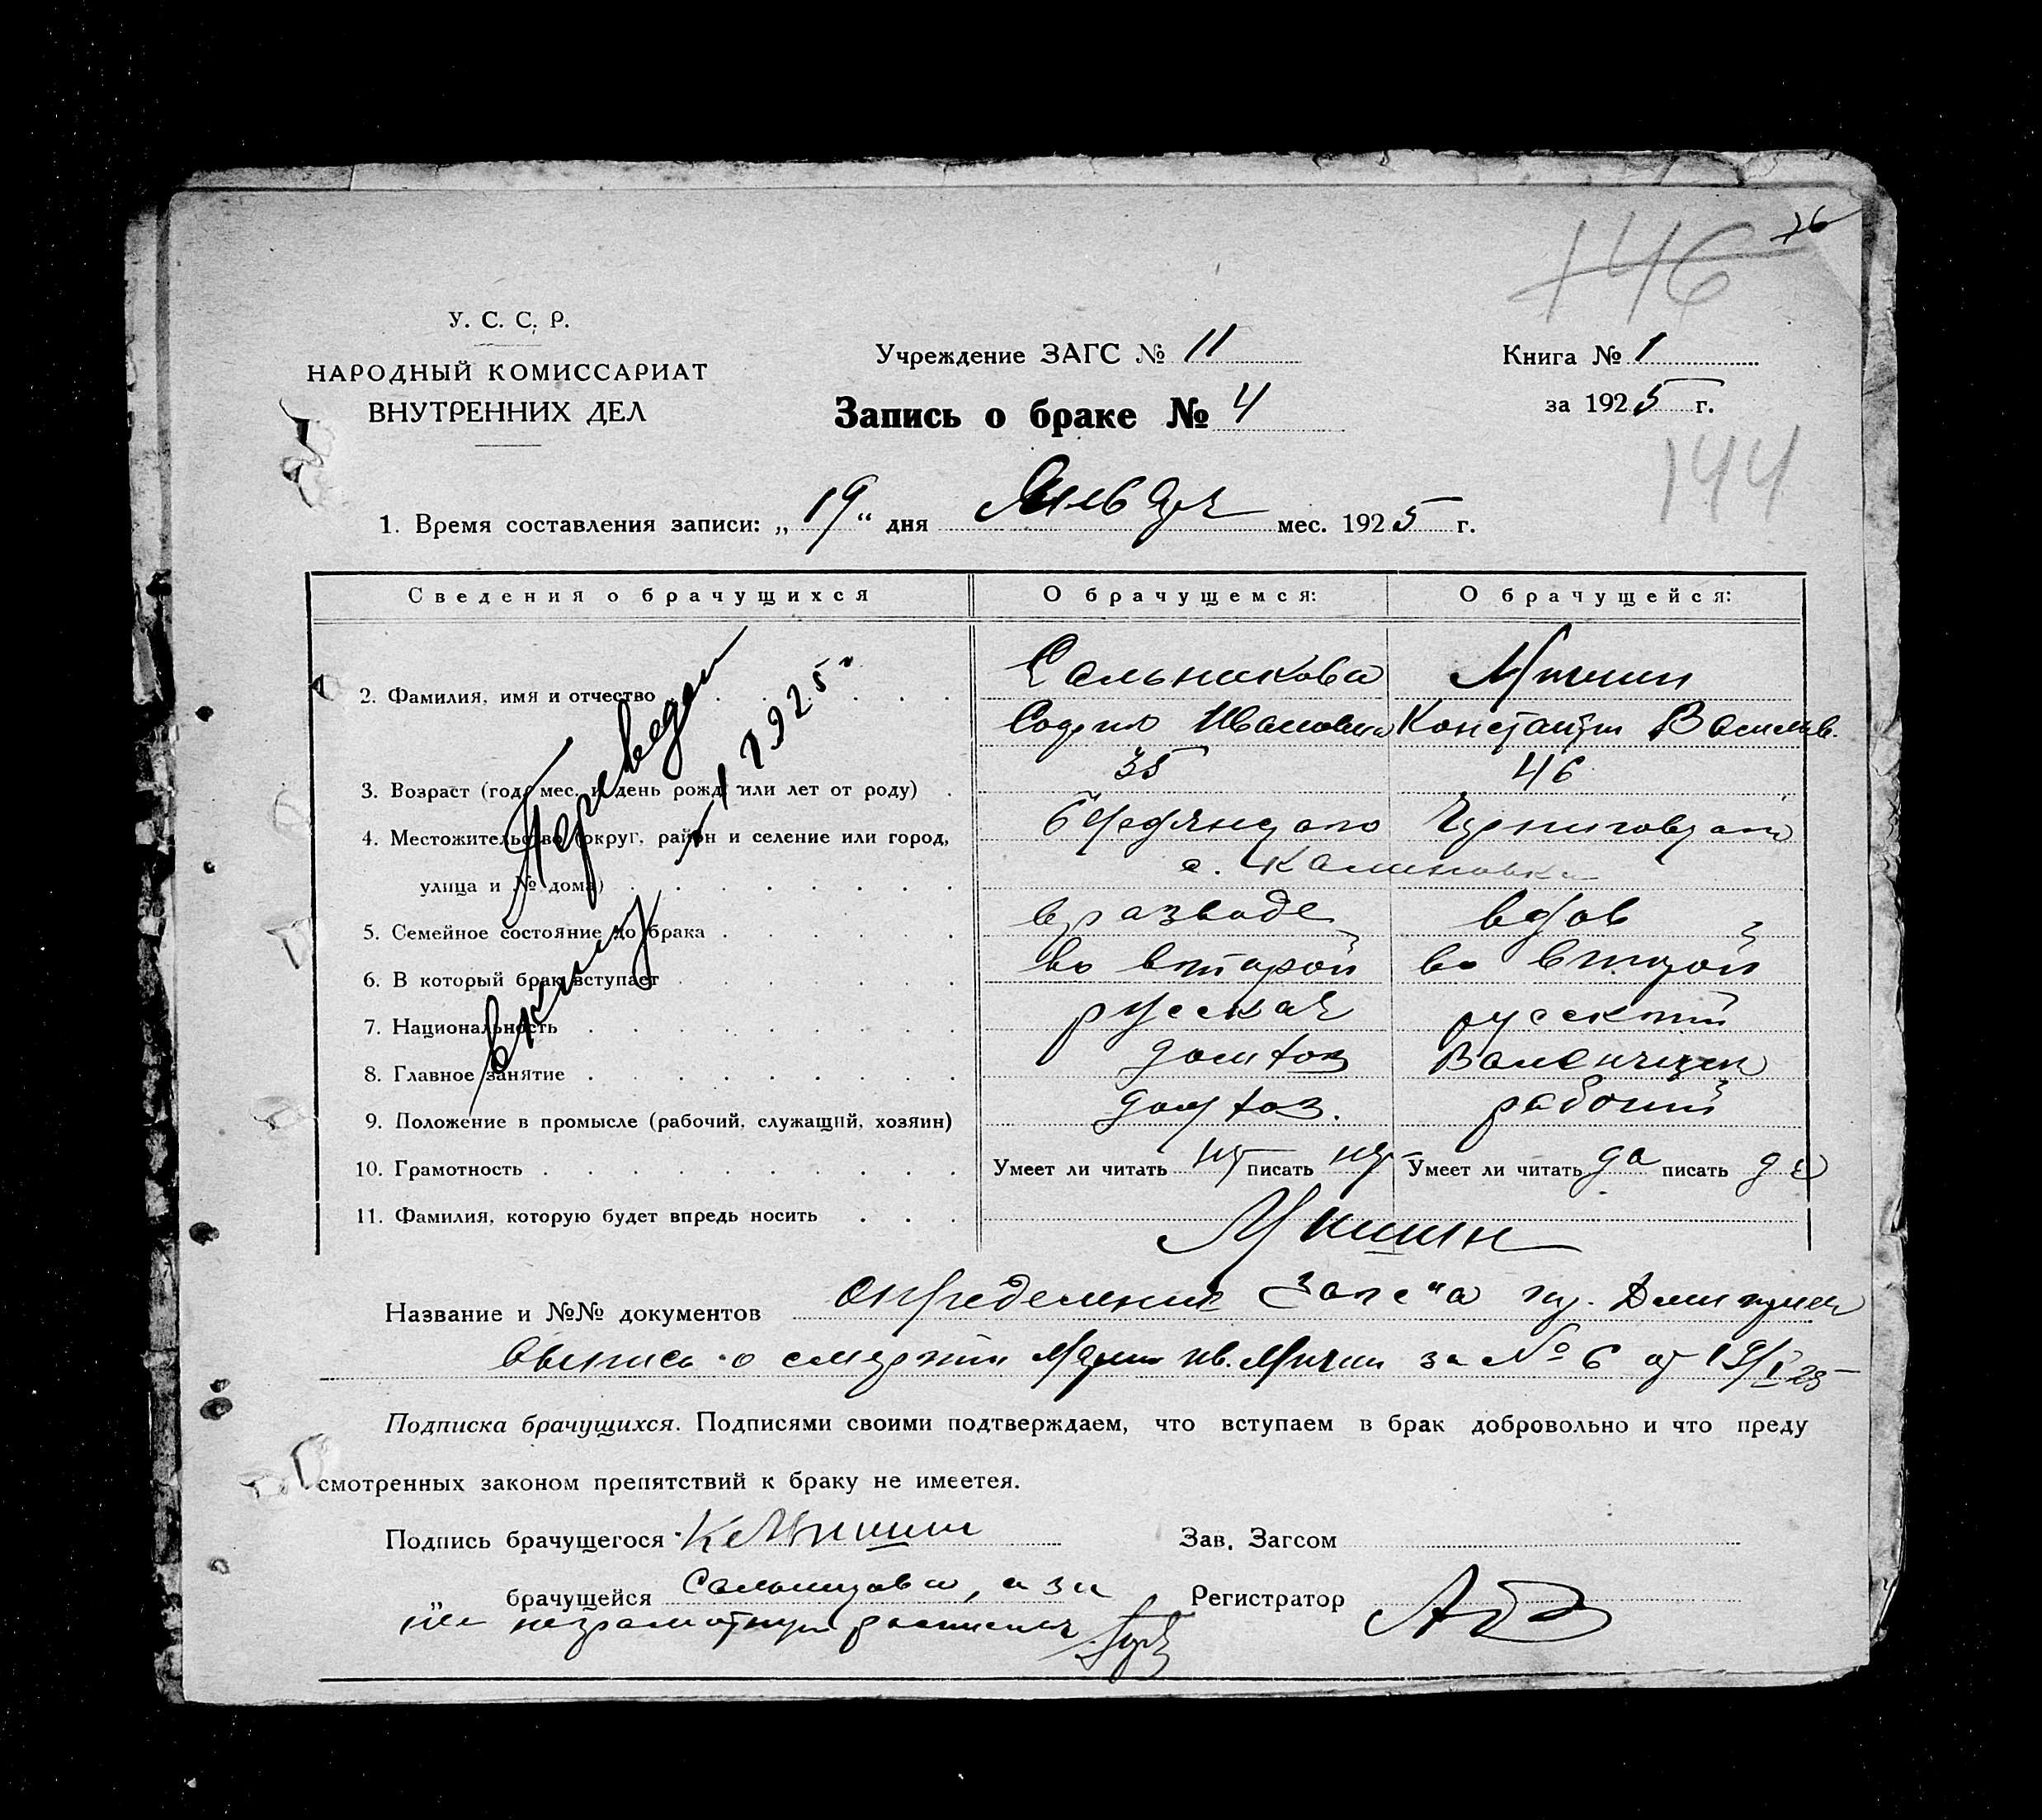 76
146
У. С. С. Р.
НАРОДНЫЙ КОМИССАРИАТ
ВНУТРЕННИХ ДЕЛ
Учреждение ЗАГС № 11
Книга № 1
Запись о браке № 4
за 1925 г.
144
1. Время составления записи: „ 19 “ дня Января мес. 1925 г.
Сведения о брачущихся О брачущемся: О брачущейся:
2. Фамилия, имя и отчество Сальникова Мишин
София Ивановна Константин Васильев.
3. Возраст (год, мес. и день рожд. или лет от роду) 35 46
4. Местожительство (округ, район и селение или город,
улица и № дома) с. Калиновка
5. Семейное состояние до брака в разводе вдов
6. В который брак вступает во второй во второй
7. Национальность русская русский
8. Главное занятие
9. Положение в промысле (рабочий, служащий, хозяин) рабочий
10. Грамотность Умеет ли читать нет писать нет Умеет ли читать да писать да
11. Фамилия, которую будет впредь носить Мишин
1925
Название и №№ документов определение Загс"а
Выпись о смерти Марии Ив. Мишин за № 6 от 19/I 25
Подписка брачущихся. Подписями своими подтверждаем, что вступаем в брак добровольно и что преду
смотренных законом препятствий к браку не имеетея.
Подпись брачущегося КМишин Зав. Загсом
„ брачущейся Сальникова, а за Регистратор
нее неграмотную расписался